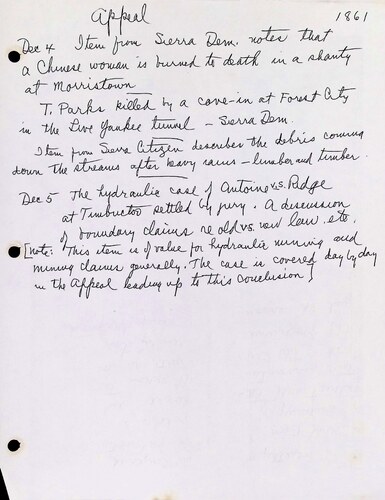 Appeal
1861
Dec 4 Item from Sierra Dem. notes that
a Chinese woman is burned to death in a shanty
at Morristown
T. Parks killed by a cave-in at Forest City
in the Live Yankee tunnel - Sierra Dem.
Item from Sierra Citizen describes the debris coming
down the streams after heavy rains - lumber and timber.
Dec 5 The hydraulic case of Antoine vs. Ridge
at Timbuctoo settled by jury. A discussion
of boundary claims re old vs. new law etc.
[Note: This item is of value for hydraulic mining and
mining claims generally. The case is covered day by day
in the Appeal leading up to this conclusion]